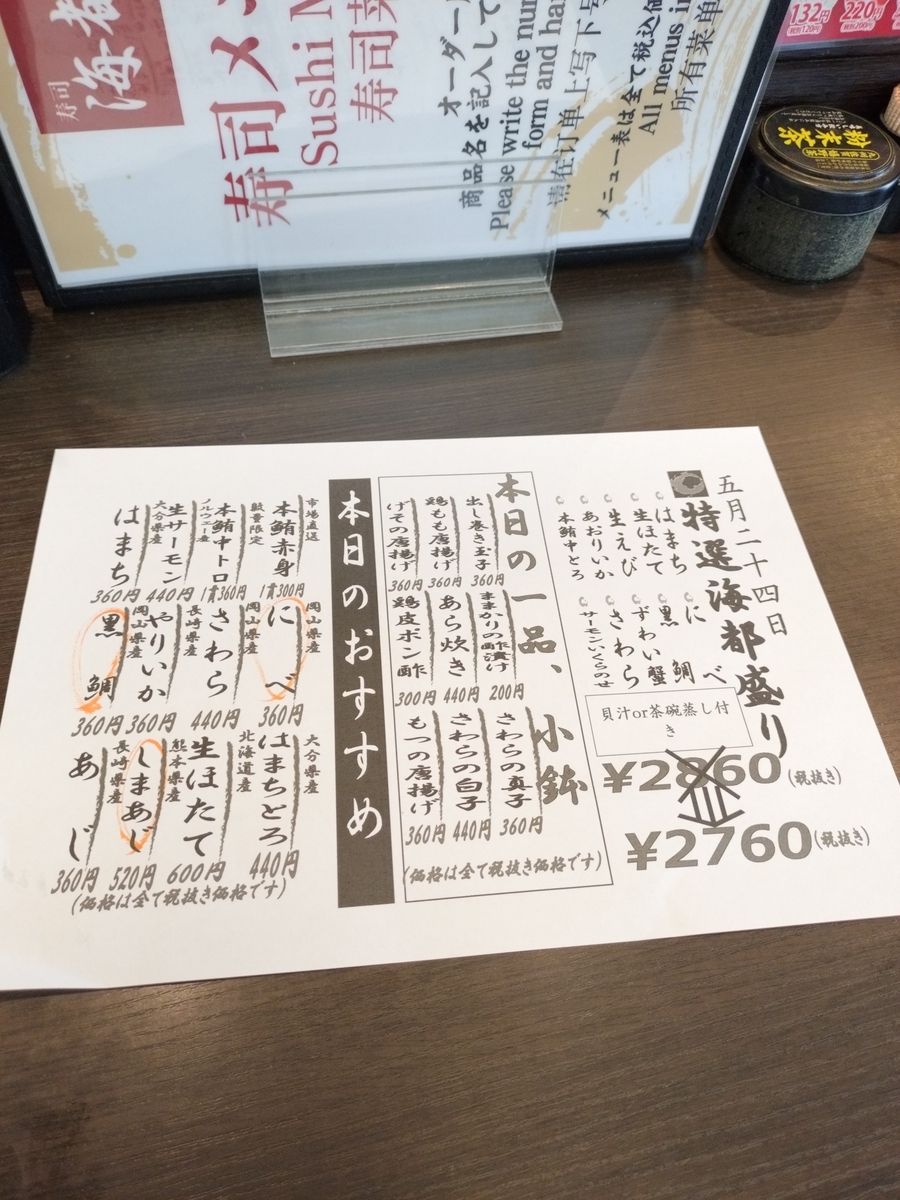 寿司
海都
寿司メ
Sushi M
寿司菜
オーダー
商品名を記入して
Please write the num
form and han
请在订单上写下号
メニュー表は全て税込価
All menus in
所有菜单
132円
税別120円
220円
税別200円
粉末茶
五月二十四日
特選海都盛り
はまち
生ほたて
生えび
あおりいか
本鮪中とろ
にべ
黒鯛
ずわい蟹
さわら
サーモンいくらのせ
貝汁or茶碗蒸し付き
¥2860(税抜き)
¥2760(税抜き)
本日の一品、小鉢
出し巻き玉子
360円
鶏もも唐揚げ
360円
げその唐揚げ
360円
ままかりの酢漬け
200円
あら炊き
440円
鶏皮ポン酢
300円
さわらの真子
360円
さわらの白子
440円
もつの唐揚げ
360円
(価格は全て税抜き価格です)
本日のおすすめ
市場直送
本鮪赤身
1貫300円
数量限定
本鮪中トロ
1貫360円
ノルウェー産
生サーモン
440円
大分県産
はまち
360円
岡山県産
にべ
360円
岡山県産
さわら
440円
長崎県産
やりいか
360円
岡山県産
黒鯛
360円
大分県産
はまちとろ
440円
北海道産
生ほたて
600円
熊本県産
しまあじ
520円
長崎県産
あじ
360円
(価格は全て税抜き価格です)